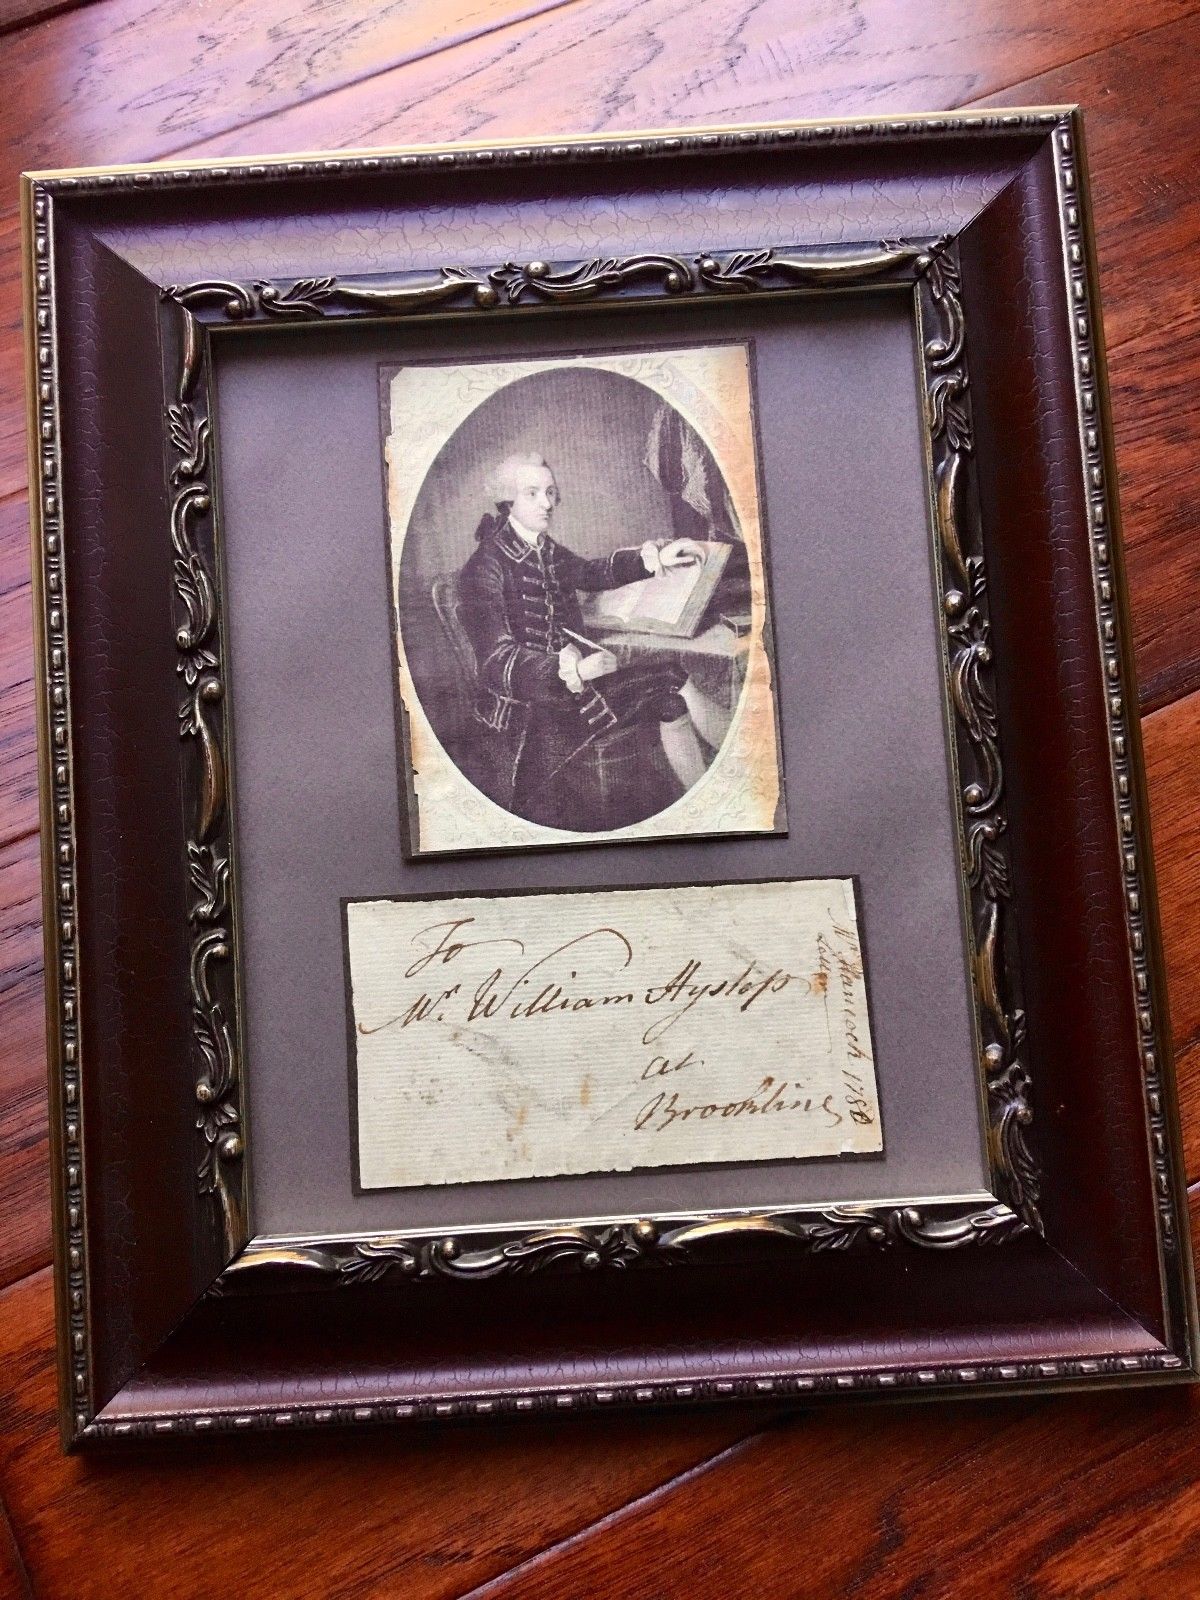 To
Mr. William Hyslop
at
Brookline
Mr. Hancock 1780
Letter